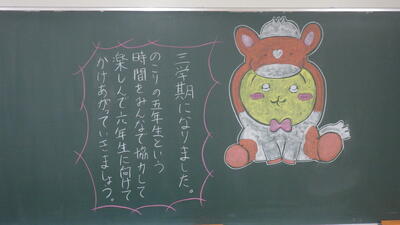 三学期になりました。
のこりの五年生という
時間をみんなで協力して
楽しんで六年生に向けて
かけあがっていきましょう。